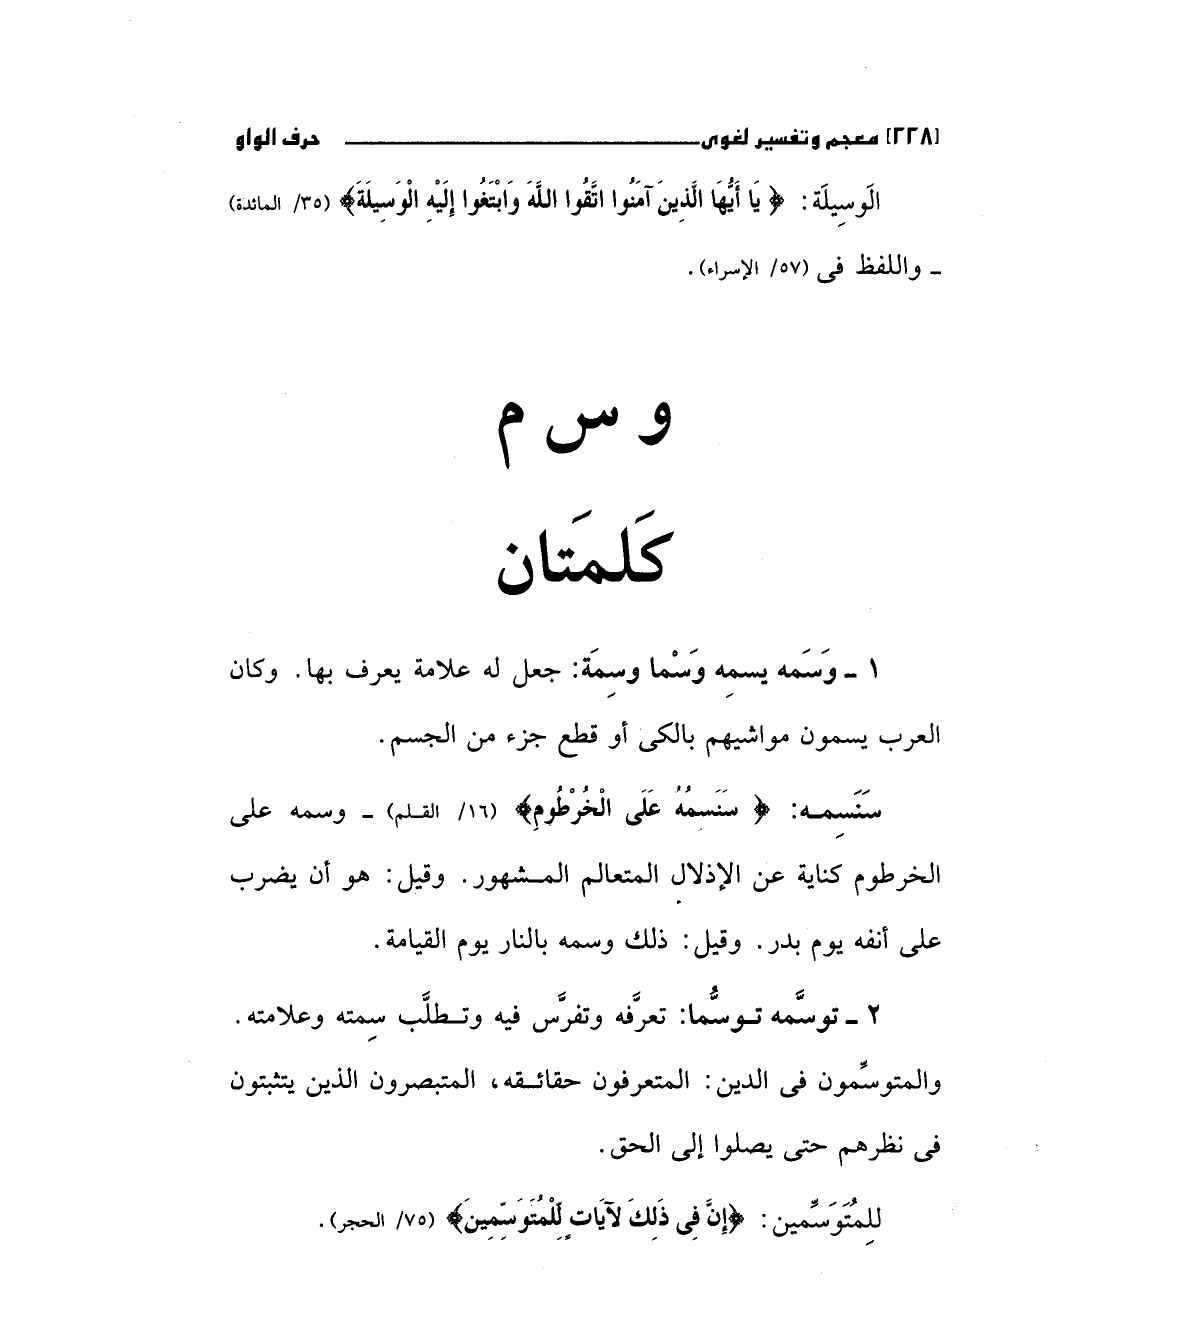 [٢٢٨] معجم وتفسير لغوى ـــــــــ حرف الواو
الوَسِيلَة: ﴿ يَا أَيُّهَا الَّذِينَ آمَنُوا اتَّقُوا اللَّهَ وَابْتَغُوا إِلَيْهِ الْوَسِيلَةَ﴾ (٣٥/ المائدة)
ـ واللفظ فى (٥٧/ الإسراء).
و س م
كَلمَتَان
١ ـ وَسَمَه يسمِه وَسْما وسِمَة: جعل له علامة يعرف بها. وكان
العرب يسمون مواشيهم بالكى أو قطع جزء من الجسم.
سَنَسِمـه: ﴿ سَنَسِمُهُ عَلَى الْخُرْطُومِ﴾ (١٦/ القـلم) ـ وسمه على
الخرطوم كناية عن الإذلال المتعالم المـشهور. وقيل: هو أن يضرب
على أنفه يوم بدر. وقيل: ذلك وسمه بالنار يوم القيامة.
٢ ـ توسَّمه تـوسُّما: تعرَّفه وتفرَّس فيه وتـطلَّب سِمته وعلامته.
والمتوسِّمون فى الدين: المتعرفون حقائـقه، المتبصرون الذين يتثبتون
فى نظرهم حتى يصلوا إلى الحق.
للِمُتَوَسِّمين: ﴿إِنَّ فِى ذَلِكَ لآيَاتٍ لِّلْمُتَوَسِّمِينَ﴾ (٧٥/ الحجر).